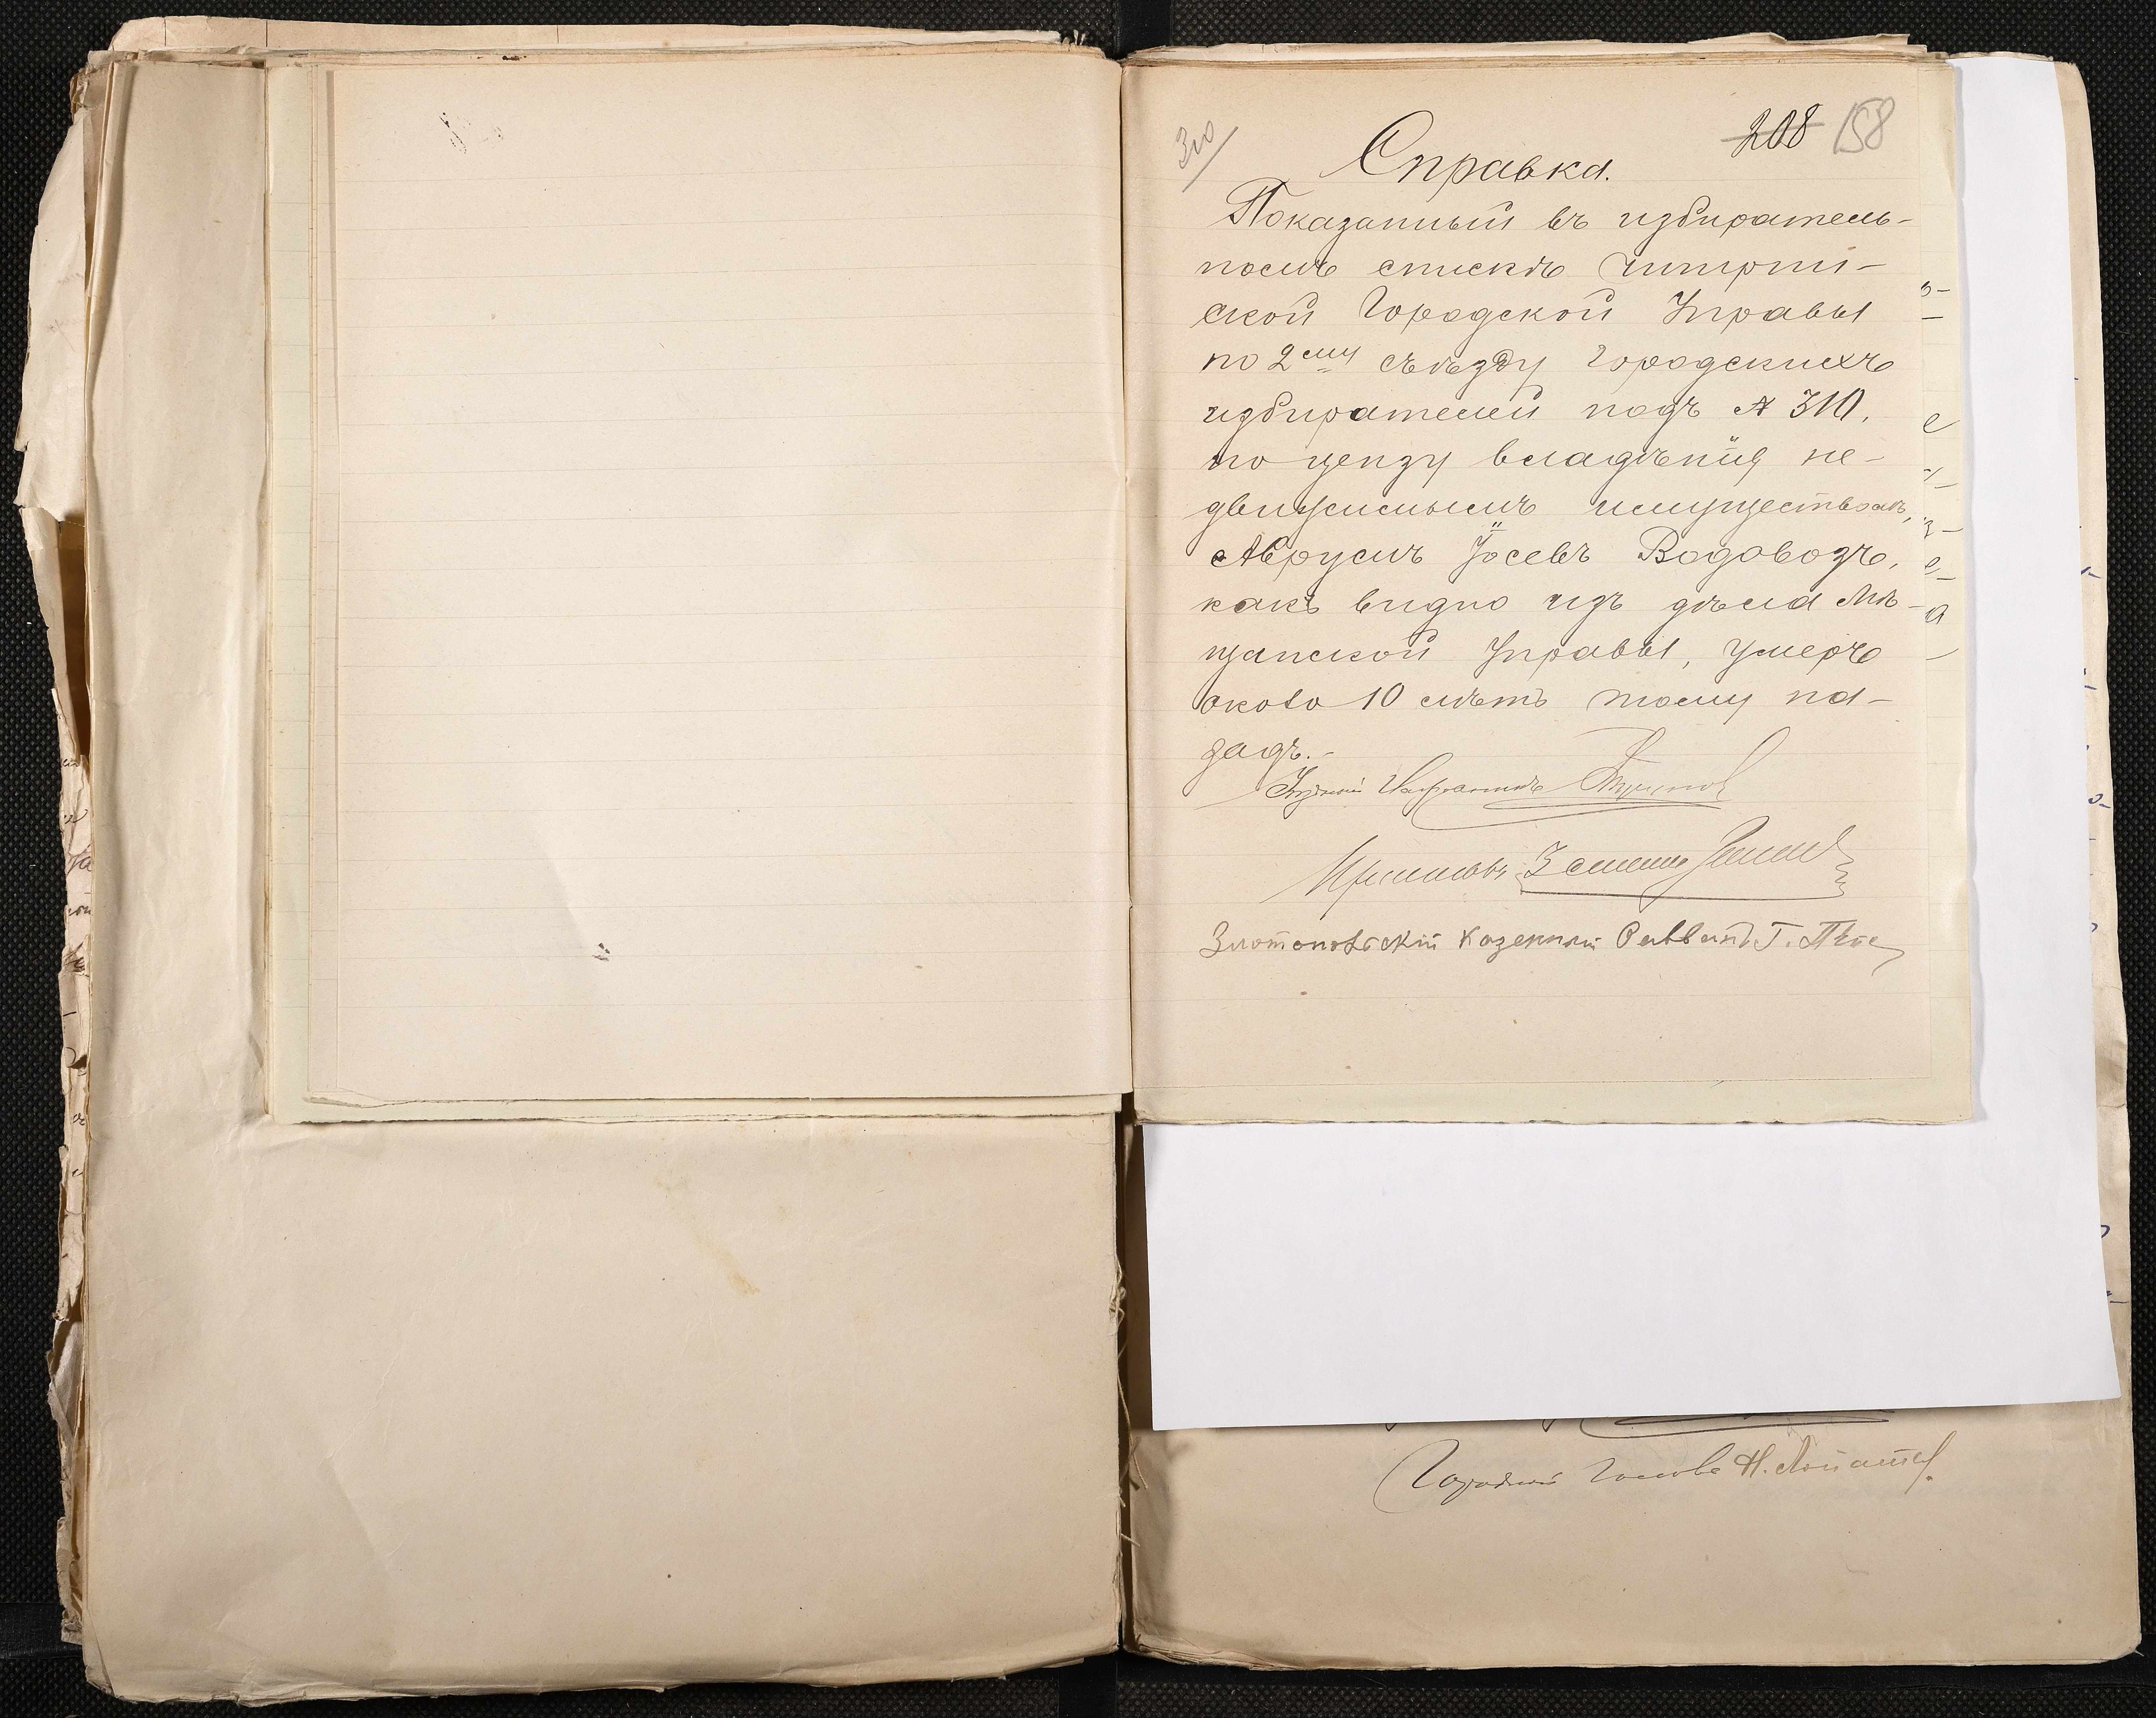 310
208 158
Справка.
Показанный въ избиратель-
номъ спискѣ Чигирин-
ской Городской Управы
по 2ому съѣзду городскихъ
избирателей подъ № 310,
по цензу владѣнія не-
движимымъ имуществомъ,
Аврумъ Іосевъ Водовозъ,
какъ видно изъ дѣла Мѣ-
щанской Управы, умеръ
около 10 лѣтъ тому на-
задъ.-
Уѣздный Исправникъ
Златопольскій Казенный Раввинъ Г.
Городской Голова Н.